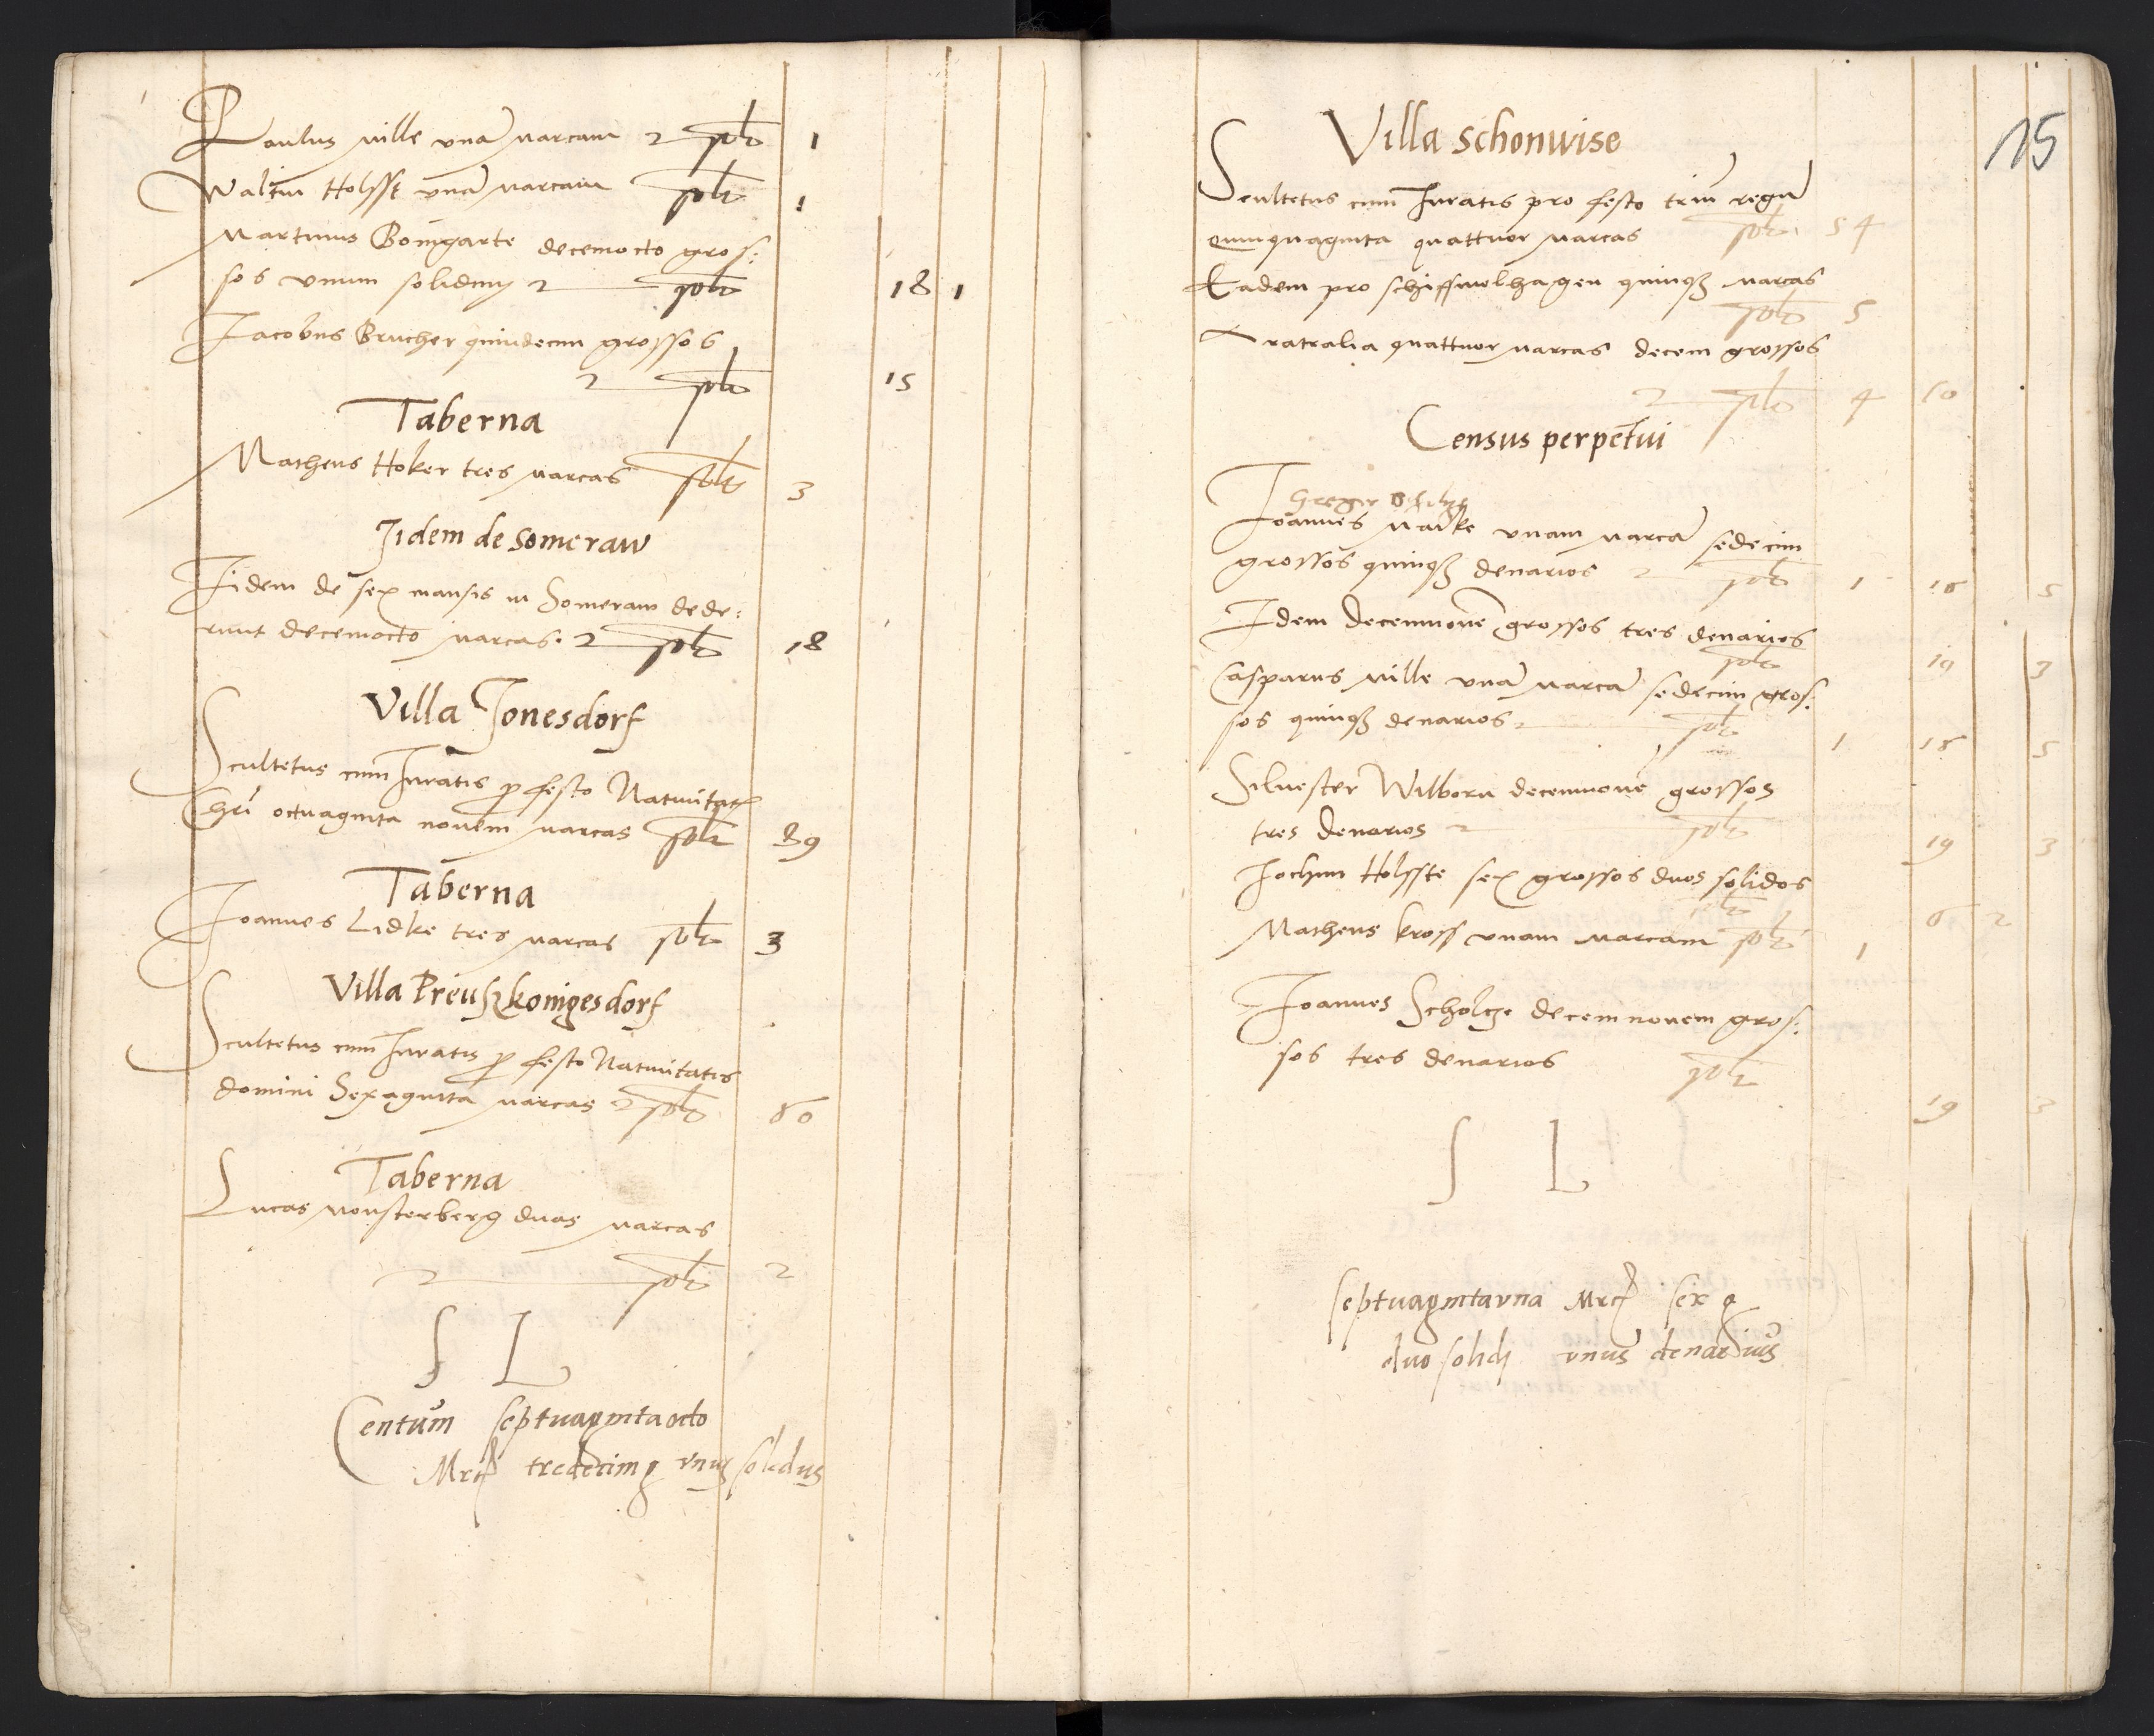 Paulus Mille una marcam 2 solt 1
Waltin Holsste una marcam solt 1
Martinus Bomgarte decemocto gros:
sos unum solidum 2 solt 18 1
Jacobus Brucher quindecim grossos
2 solt 15
Taberna
Matheus Hoker tres marcas solt 3
Iidem de Someraw
Iidem de sex mansis in Someraw dede:
runt decemocto marcas. 2 solt 18
Villa Jonesdorf
Scultetus cum Iuratis p festo Natiuitatis
Chri octuaginta nouem marcas solt 89
Taberna
Joannes Lidke tres marcas solt 3
Villa Preuszkonigesdorf
Scultetus cum Iuratis p festo Natiuitatis
domini Sexaginta marcas 2 solt 60
Taberna
Lucas Monsterberg duas marcas
2 solt 2
S L
Centum septuagintaocto
Mrc tredecim g unus solidus
15
Villa Schonwise
Scultetus cum Iuratis pro festo triu regu
quinquaginta quattuor marcas solt 54
Eadem pro schiffmolhagen quinq3 marcas
solt 5
Aratralia quattuor marcas decem grossos
2 solt 4 10
Census perpetui
Greger
Joannes Maike unam marca sedecim
grossos quinq3 denarios 2 solt 1 16 5
Idem decemnoue grossos tres denarios
solt 19 3
Casparus Mille una marca sedecim gros:
sos quinq3 denarios 2 solt 1 16 5
Siluester Wilborn decemnoue grossos
tres denarios 2 solt 19 3
Jochim Holsste sex grossos duos solidos
solt 6 2
Matheus Kross unam marcam solt 1
Joannes Scholcze decemnouem gros:
sos tres denarios solt
19 3
S L
septuagintauna Mrc sex g
duo solidi unus denarius